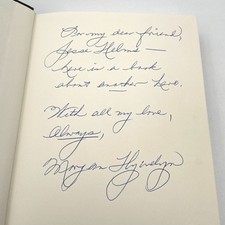 For my dear friend,
Jesse Helms —
here is a book
about another hero.
With all my love,
Always,
Morgan Llywelyn